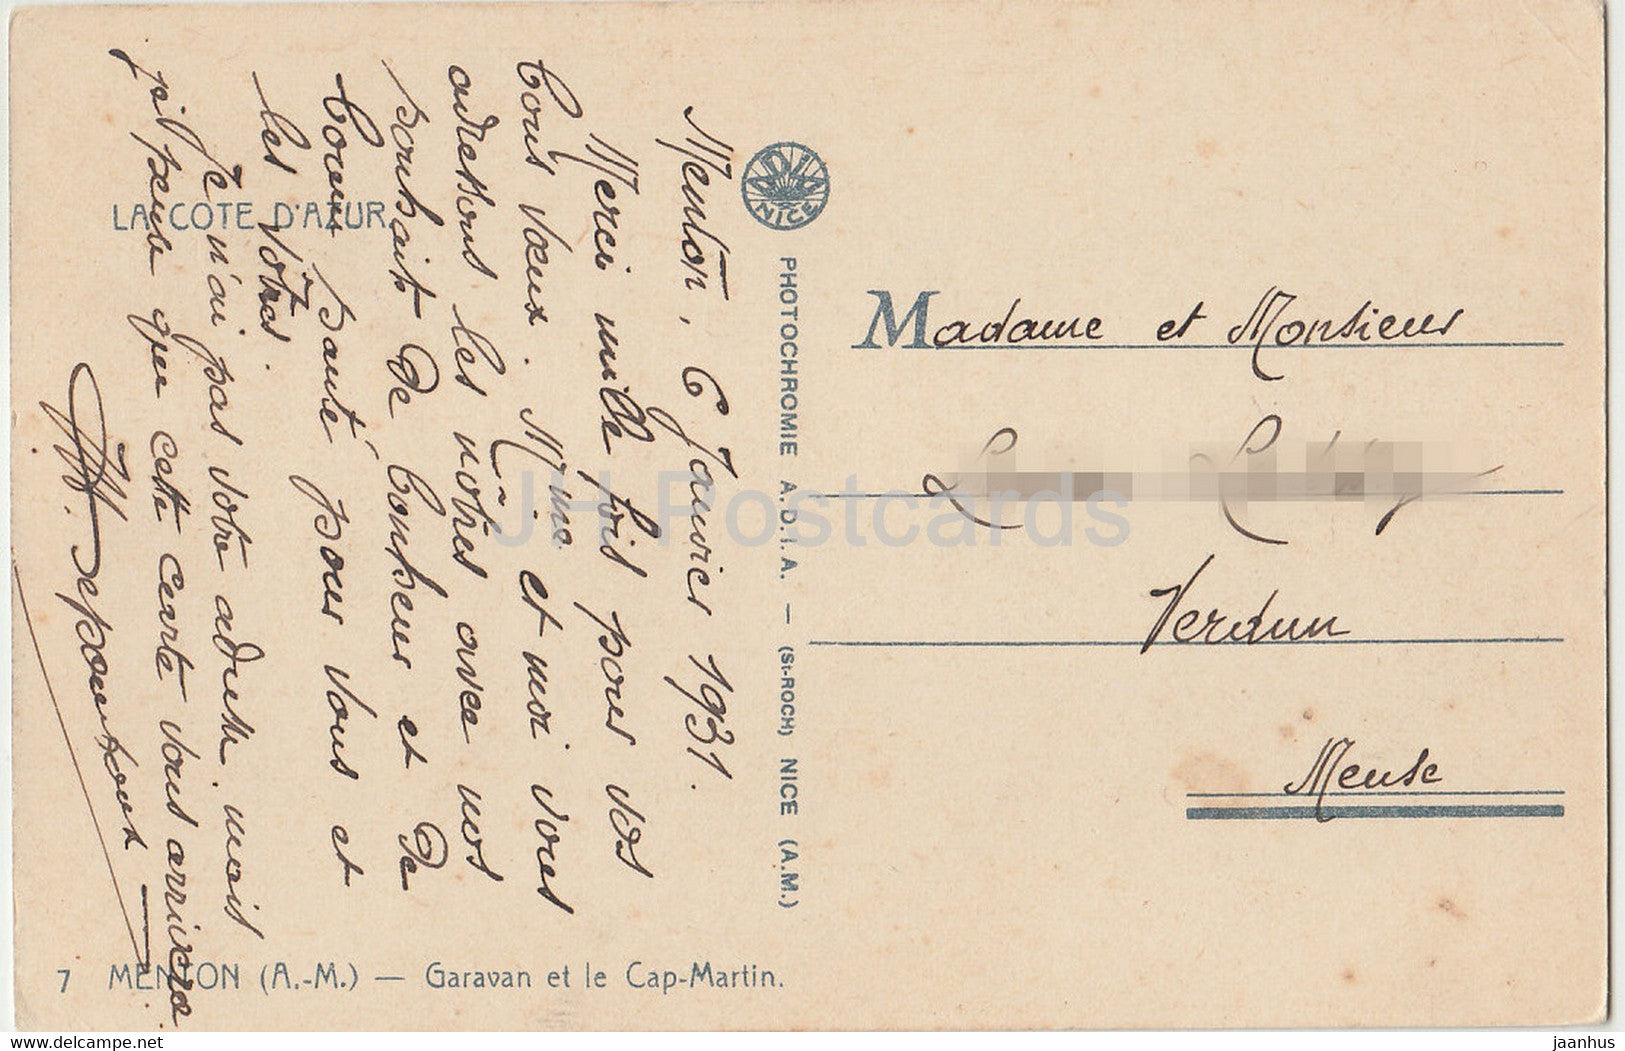 LA COTE D'AZUR.
Menton, 6 Janvier 1931.
Merci mille fois pour vos
bons vœux. Mme et moi vous
adressons les nôtres avec nos
souhaits de bonheur et de
bonne santé pour vous et
les vôtres.
Je n'ai pas votre adresse mais
je pense que cette carte vous arrivera
7 MENTON (A.-M.) — Garavan et le Cap-Martin.
ADIA
NICE
PHOTOCHROMIE A.D.I.A. — (St-ROCH) NICE (A.M.)
Madame et Monsieur
Verdun
Meuse
JH Postcards
hippostcard.com
jaanhus